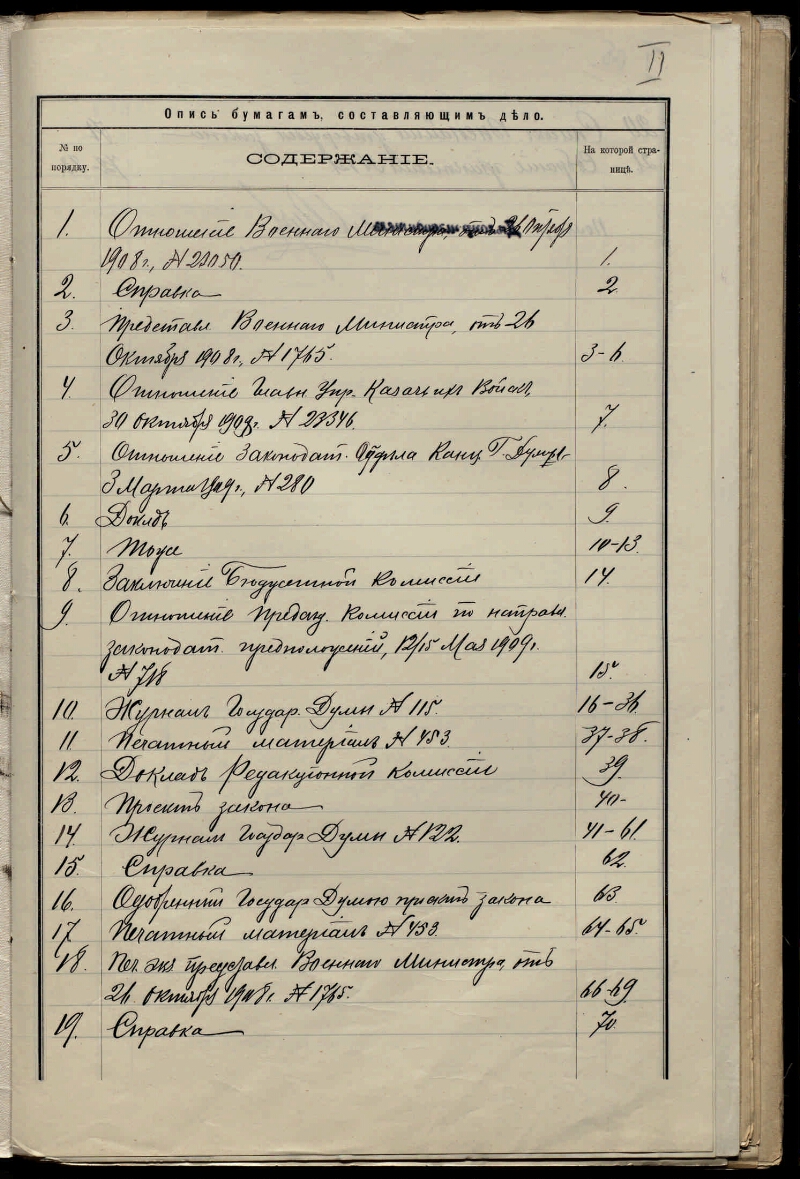 II
Опись бумагамъ, составляющимъ дѣло.
№ по порядку.
СОДЕРЖАНІЕ.
На которой страницѣ.
1. Отношеніе Военнаго Министра, отъ 26 Октября
1908 г., № 1.
2. Справка 2.
3. Представл Военнаго Министра, отъ 26
Октября 1908 г., № 1765. 3-6
4. Отношеніе Главн Упр. Казачьихъ Войскъ,
30 октября 1908 г. № 23346. 7.
5. Отношеніе Законодат. Отдѣла Канц Г. Думы
3 Марта 1909 г., № 280 8.
6. Докладъ 9.
7. Тоже 10-13.
8. Заключеніе Бюджетной Комиссіи 14.
9. Отношеніе Предсѣд. Комиссіи по направл.
законодат. предположеній, 12/15 Мая 1909 г.
№ 718 15.
10. Журналъ Государ. Думы № 115. 16-36
11 Печатный матеріалъ № 453. 37-38.
12. Докладъ Редакціонной Комиссіи 39.
13. Проектъ закона 40-
14. Журналъ Государ Думы № 122. 41-61.
15. Справка 62.
16. Одобренный Государ Думою проектъ закона 63.
17 Печатный матеріалъ № 453. 64-65.
18. Печ. экз представл. Военнаго Министра, отъ
26 октября 1908 г. № 1765. 66-69.
19. Справка 70.